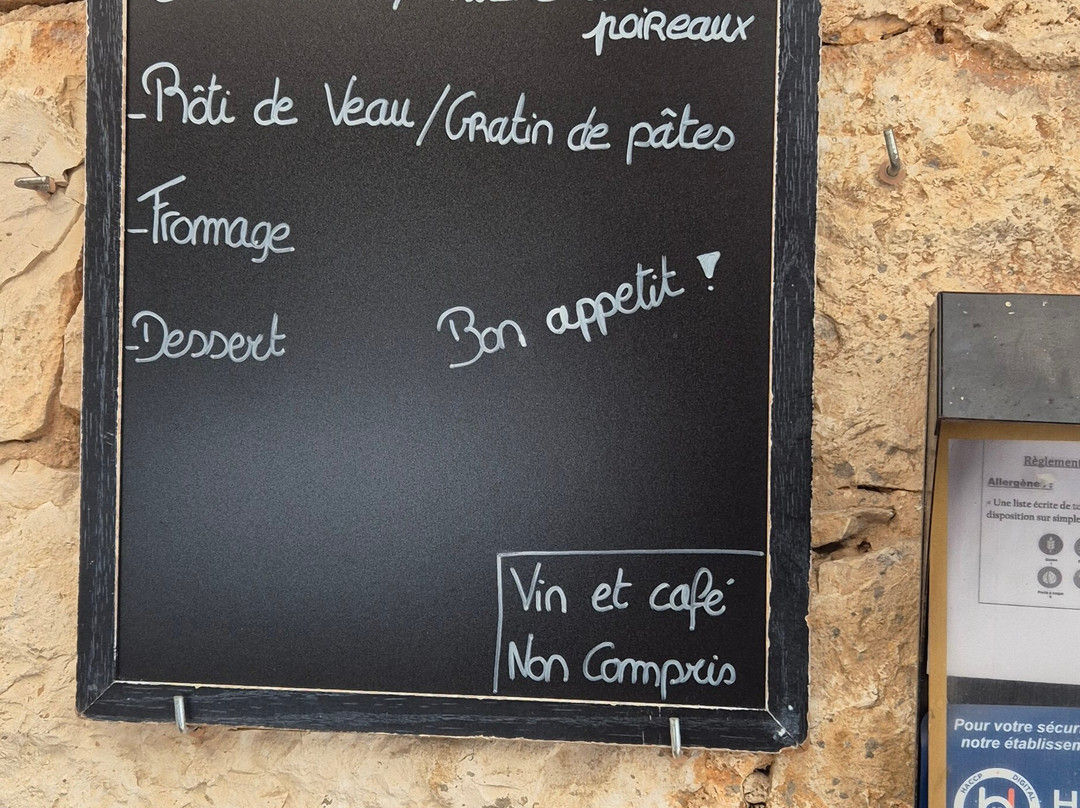 poireaux
-Rôti de Veau/Gratin de pâtes
-Fromage
-Dessert
Bon appetit !
Vin et café
Non Compris
Règlement
Allergènes :
* Une liste écrite de
disposition sur simple
Pour votre sécur
notre établissem
HACCP DIGITAL
H